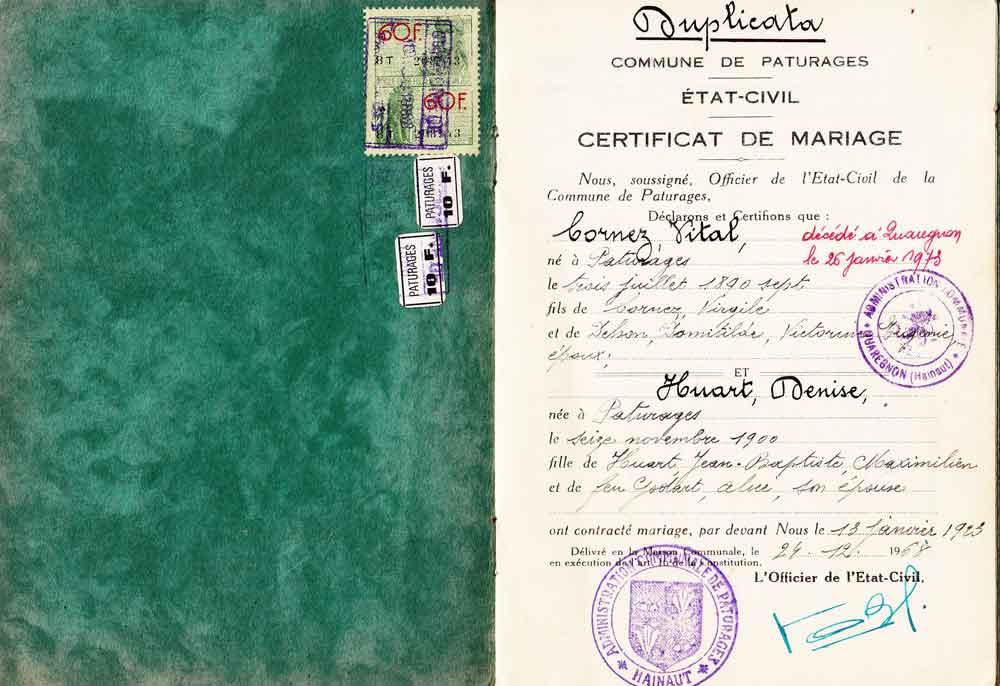 60F.
60F.
PATURAGES
10 F.
PATURAGES
10 F.
Duplicata
COMMUNE DE PATURAGES
ÉTAT-CIVIL
CERTIFICAT DE MARIAGE
Nous, soussigné, Officier de l'Etat-Civil de la
Commune de Paturages,
Déclarons et Certifions que :
Cornez, Vital,
décédé à Quaregnon
né à Paturages
le 26 janvier 1973
le trois juillet 1890 sept
fils de Cornez, Virgile
et de Domitilde, Victorine
époux;
ADMINISTRATION COMMUNALE
QUAREGNON (Hainaut)
ET
Huart, Denise,
née à Paturages
le seize novembre 1900
fille de Huart, Jean-Baptiste, Maximilien
et de feu Godart, Alice, son épouse
ont contracté mariage, par devant Nous le 13 janvier 1923
Délivré en la Maison Communale, le 24 . 12 . 1968
en exécution de l'art. de la Constitution.
L'Officier de l'Etat-Civil,
ADMINISTRATION COMMUNALE DE PATURAGES
HAINAUT